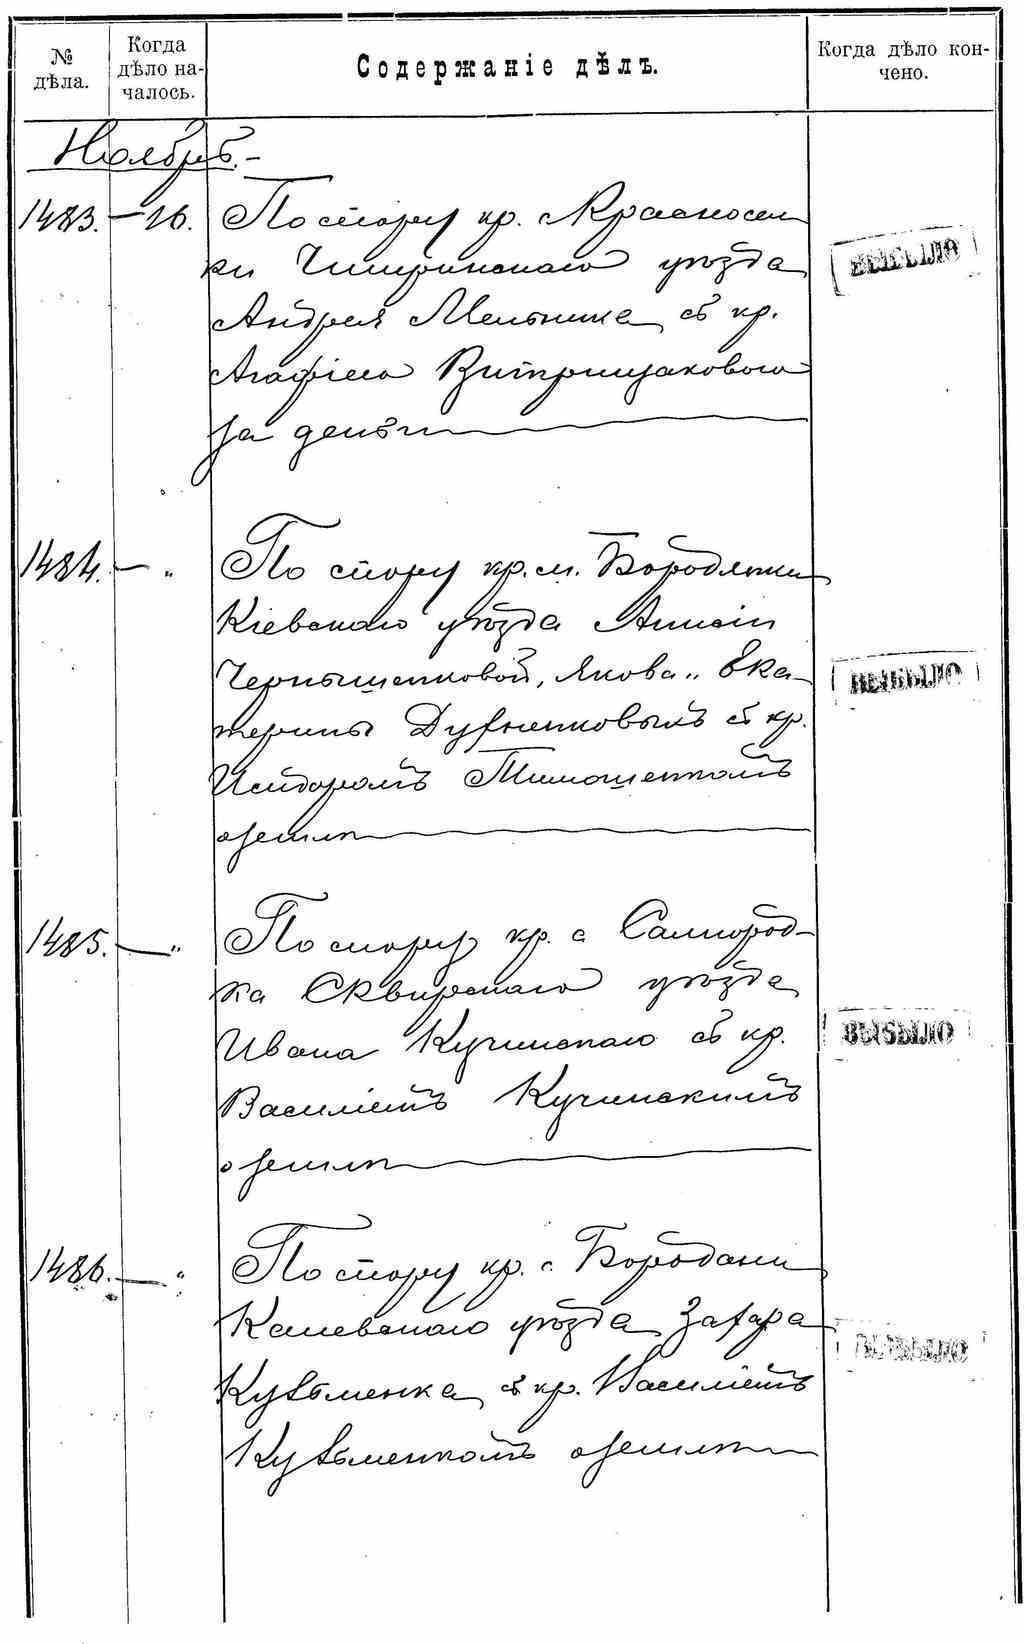 №
дѣла.
Когда
дѣло на-
чалось.
Содержаніе дѣлъ.
Когда дѣло кон-
чено.
Ноябрь.
1483. — 16. По спору кр. с Красносел
ки Чигиринскаго уѣзда
Андрея Мельника съ кр.
за деньги
ВЫБЫЛО
1484. — „ По спору кр. м. Бородянки
Кіевскаго уѣзда Анисіи
Чернышенковой, Якова и Ека-
терины съ кр.
Исидоромъ Тимошенкомъ
о земли
ВЫБЫЛО
1485. — „ По спору кр. с Самгород-
ка Сквирскаго уѣзда
Ивана Кучинскаго съ кр.
Василіемъ Кучинскимъ
о земли
ВЫБЫЛО
1486. — „ По спору кр. с. Бородани
Каневскаго уѣзда Захара
Кузьменка съ кр. Василіемъ
Кузьменкомъ о земли
ВЫБЫЛО